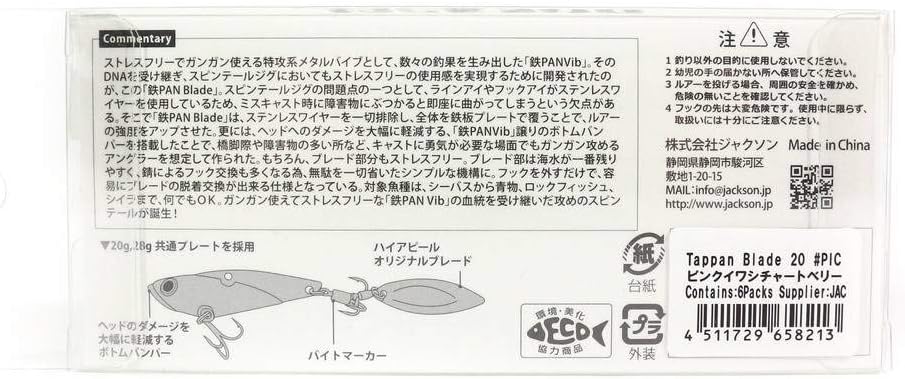 Commentary
ストレスフリーでガンガン使える特攻系メタルバイブとして、数々の釣果を生み出した「鉄PANVib」。その
DNAを受け継ぎ、スピンテールジグにおいてもストレスフリーの使用感を実現するために開発されたの
が、この「鉄PAN Blade」。スピンテールジグの問題点の一つとして、ラインアイやフックアイがステンレスワ
イヤーを使用しているため、ミスキャスト時に障害物にぶつかると即座に曲がってしまうという欠点があ
る。そこで「鉄PAN Blade」は、ステンレスワイヤーを一切排除し、全体を鉄板プレートで覆うことで、ルアー
の強度をアップさせた。更には、ヘッドへのダメージを大幅に軽減する、「鉄PANVib」譲りのボトムバン
パーを搭載したことで、橋脚際や障害物の多い所など、キャストに勇気が必要な場面でもガンガン攻める
アングラーを想定して作られた。もちろん、ブレード部分もストレスフリー。ブレード部は海水が一番残り
やすく、錆によるフック交換も多くなる為、無駄を一切省いたシンプルな機構に。フックを外すだけで、容
易にブレードの脱着交換が出来る仕様となっている。対象魚種は、シーバスから青物、ロックフィッシュ、
シイラまで、何でもOK。ガンガン使えてストレスフリーな「鉄PAN Vib」の血統を受け継いだ攻めのスピン
テールが誕生！
▼20g,28g 共通プレートを採用
ハイアピール
オリジナルブレード
ヘッドのダメージを
大幅に軽減する
ボトムバンパー
バイトマーカー
注 意
1 釣り以外の目的に使用しないでください。
2 幼児の手の届かない所へ保管してください。
3 ルアーを投げる場合、周囲の安全を確かめ、
危険の無いことを確認してください。
4 フックの先は大変危険です。使用中に限らず、
取扱いには十分にご注意ください。
株式会社ジャクソン Made in China
静岡県静岡市駿河区
敷地1-20-15
MAIL：info@jackson.jp
http://www.jackson.jp
紙
台紙
環境・美化
ECO
協力商品
プラ
外装
Tappan Blade 20 #PIC
ピンクイワシチャートベリー
Contains:6Packs Supplier:JAC
4 511729 658213